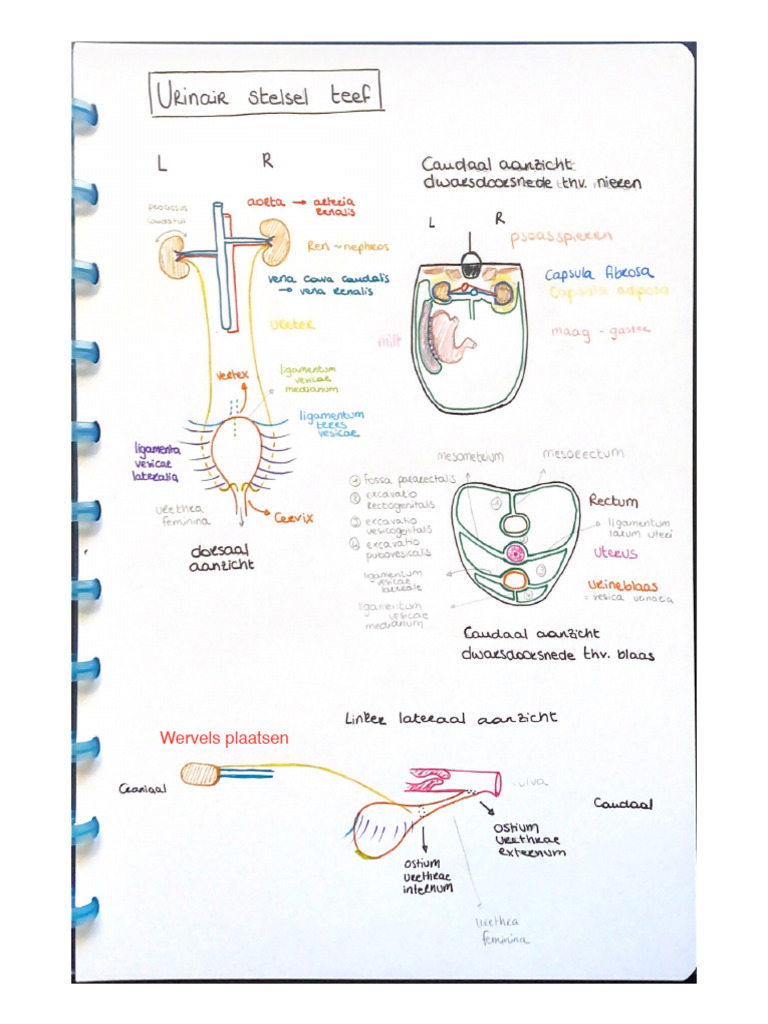 Urinair stelsel teef
L R
processus
caudatus
aorta → arteria
renalis
Ren ~ nephros
vena cava caudalis
→ vena renalis
ureter
vertex
ligamentum
vesicae
medianum
ligamentum
teres
vesicae
ligamenta
vesicae
lateralia
urethra
feminina
Cervix
dorsaal
aanzicht
Caudaal aanzicht
dwarsdoorsnede thv. nieren
L R
psoasspieren
Capsula fibrosa
Capsula adiposa
milt
maag - gaster
mesometrium
mesorectum
① fossa pararectalis
② excavatio
rectogenitalis
③ excavatio
vesicogenitalis
④ excavatio
pubovesicalis
ligamentum
vesicae
laterale
ligamentum
vesicae
medianum
1
3
4
Rectum
ligamentum
latum uteri
Uterus
Urineblaas
= vesica urinaria
Caudaal aanzicht
dwarsdoorsnede thv. blaas
Linker lateraal aanzicht
Wervels plaatsen
Craniaal
vulva
Caudaal
Ostium
urethrae
externum
Ostium
urethrae
internum
urethra
feminina